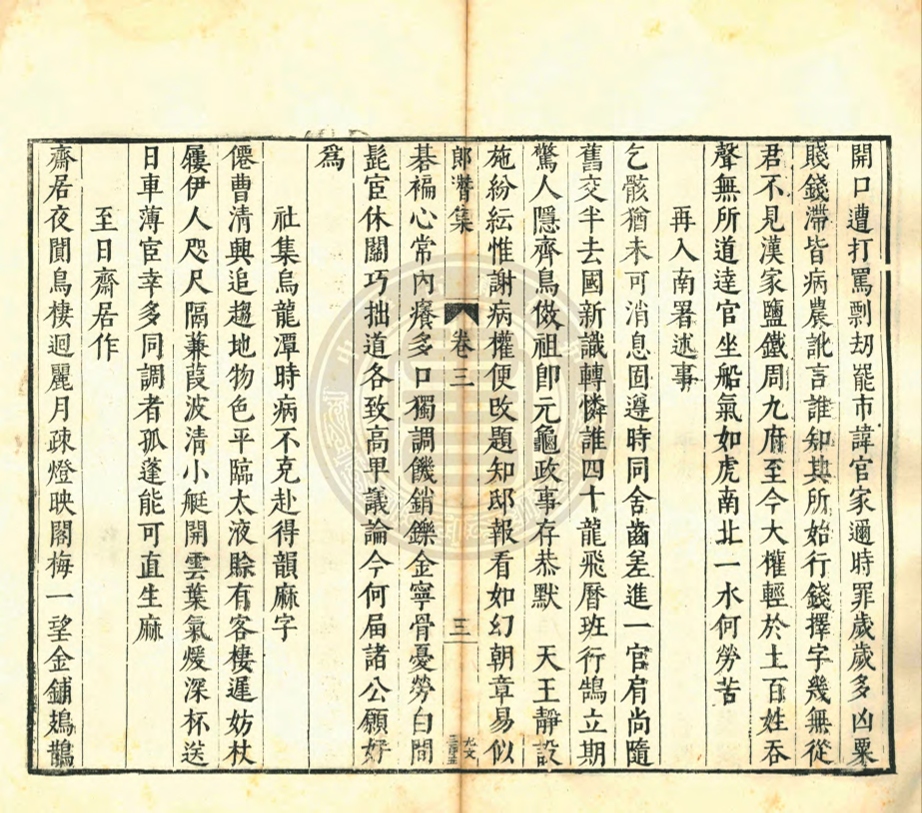 開口遭打罵剽刼罷市諱官家邇時罪歲歲多凶粟
賤錢滯皆病農訛言誰知其所始行錢擇字幾無從
君不見漢家鹽鐵周九府至今大權輕於土百姓吞
聲無所道逹官坐船氣如虎南北一水何勞苦
再入南署述事
乞骸猶未可消息固遵時同舍齒差進一官肩尚隨
舊交半去國新識轉憐誰四十龍飛曆班行鵠立期
驚人隱齊鳥倣祖卽元龜政事存恭默　天王靜設
施紛紜惟謝病權便改題知邸報看如幻朝章易似
郎潛集　卷三　三
棊褊心常內癢多口獨調饑銷鑠金寧骨憂勞白間
髭宦休關巧拙道各致高卑議論今何届諸公願好
爲
社集烏龍潭時病不克赴得韻麻字
僊曹清興追趨地物色平臨太液賒有客棲遲妨杖
屨伊人咫尺隔蒹葭波清小艇開雲葉氣煖深杯送
日車薄宦幸多同調者孤蓬能可直生麻
至日齋居作
齋居夜闃鳥棲迴麗月疎燈映閣梅一望金鋪鳷鵲